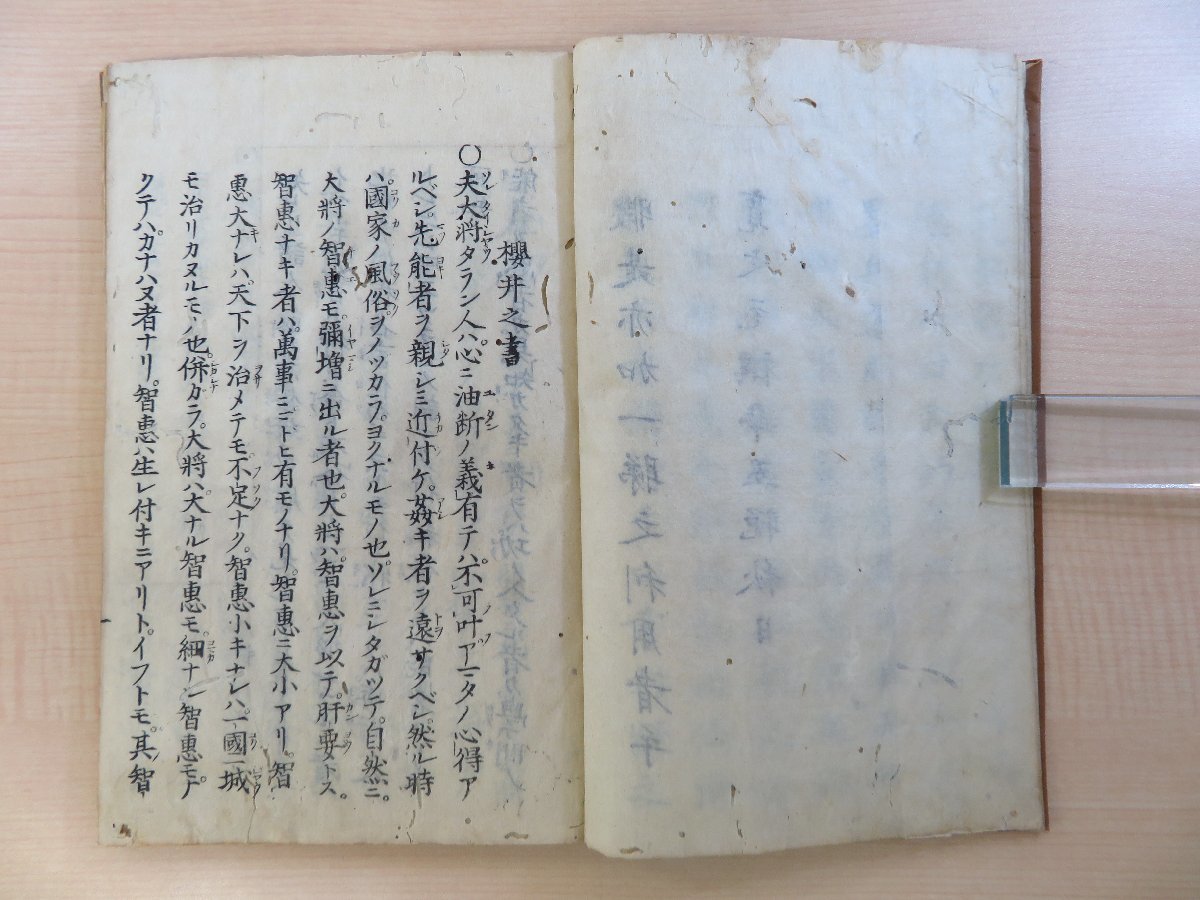 櫻井之書
○夫大將タラン人ハ心ニ油断ノ義有テハ不可叶アマタノ心得ア
ルベシ先能者ヲ親シミ近付ケ姦キ者ヲ遠サクベシ然ル時
ハ國家ノ風俗ヲノツカラヨクナルモノ也ソレニシタガツテ自然ニ
大將ノ智惠モ彌増ニ出ル者也大將ハ智惠ヲ以テ肝要トス
智惠ナキ者ハ萬事ミゴドヒ有モノナリ智惠ニ大小アリ智
惠大ナレハ天下ヲ治メテモ不足ナク智惠小キナレハ一國一城
モ治リカヌルモノ也併ガラ大將ハ大ナル智惠モ細ナシ智惠モナ
クテハカナハヌ者ナリ智惠ハ生レ付キニアリトイフトモ其智